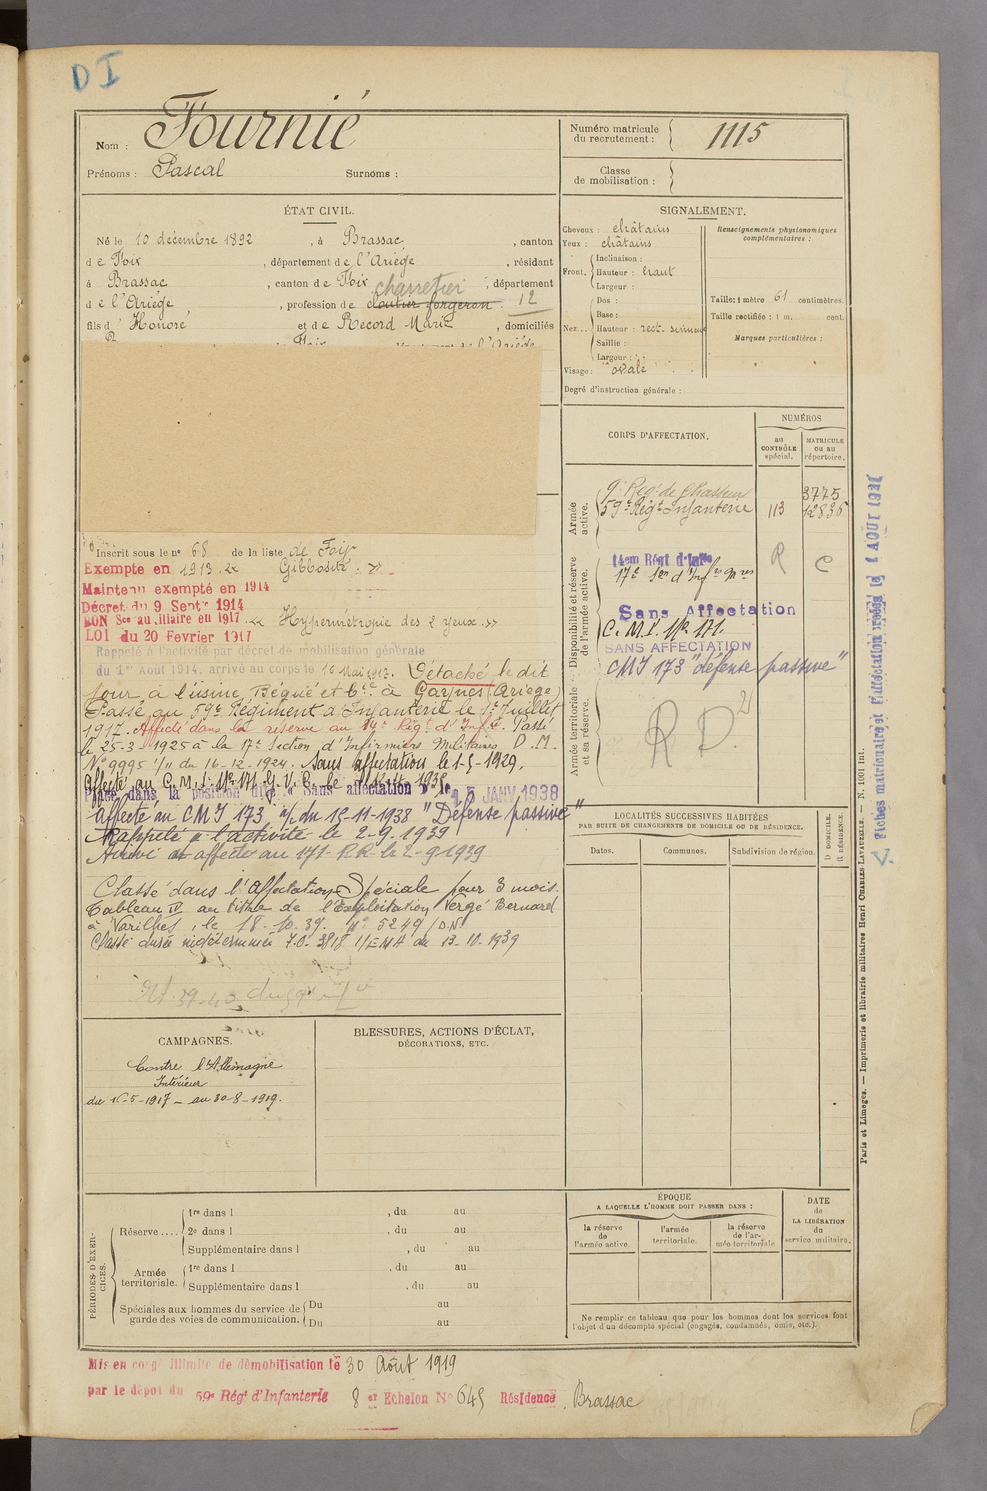 D I
Nom : Fournié
Prénoms : Pascal Surnoms :
Numéro matricule du recrutement : 1115
Classe de mobilisation :
ÉTAT CIVIL.
Né le 10 décembre 1892, à Brassac, canton
de Foix, département de l'Ariège, résidant
à Brassac, canton de Foix, département
charretier
de l'Ariège, profession de cloutier forgeron. 12
fils d'Honoré et de Record Marie, domiciliés
SIGNALEMENT.
Cheveux : châtains
Yeux : châtains
Front. Inclinaison :
Hauteur : haut
Largeur :
Nez... Dos :
Base :
Hauteur : rect. sinueux
Saillie :
Largeur :
Visage : ovale
Renseignements physionomiques complémentaires :
Taille : 1 mètre 61 centimètres.
Taille rectifiée : 1 m. cent.
Marques particulières :
Degré d'instruction générale :
CORPS D'AFFECTATION.
NUMÉROS
au CONTRÔLE spécial.
MATRICULE ou au répertoire.
Armée active.
9e Regt de Chasseurs 3775
59e Régt Infanterie 113 12836
Disponibilité et réserve de l'armée active.
14em Régt d'Infie
17e Son d'Infres Mres R C
Sans Affectation
C. M. I. No 171.
SANS AFFECTATION
CMI 173 "défense passive"
Armée territoriale et sa réserve.
R D 2
Inscrit sous le no 68 de la liste de Foix
Exempte en 1913. << Gibbosité. >>
Maintenu exempté en 1914
Décret du 9 Septe 1914
BON Sce auxiliaire en 1917 << Hypermétropie des 2 yeux. >>
LOI du 20 Fevrier 1917
Rappelé à l'activité par décret de mobilisation générale
du 1er Août 1914, arrivé au corps le 16 Mai 1917. Détaché le dit
jour à l'usine, Bégué et Cie à Garnes (Ariège)
Passé au 59e Régiment d'Infanterie le 1er Juillet
1917. Affecté dans la réserve au 14e Régt d'Infie. Passé
le 25-3-1925 à la 17e Section d'Infirmiers Militaires D.M.
No 9995 1/11 du 16-12-1924. Sans affectation le 1-5-1929.
Affecté au C.M.I. No 171
Placé dans la position dite « Sans affectation » le 15 JANV 1938
affecté au CMI 173 du 15-11-1938 "Défense passive"
Rappelé à l'activité le 2-9-1939
Arrivé et affecté au 171 R.R. le 2-9-1939
Classé dans l'Affectation Spéciale pour 3 mois.
Tableau IV au titre de l'Exploitation Vergé Bernard
à Varilhes, le 18-10-39. No 5249/D.N
Classé durée indéterminée 3818 1/EMA du 13-10-1939
LOCALITÉS SUCCESSIVES HABITÉES
PAR SUITE DE CHANGEMENTS DE DOMICILE OU DE RÉSIDENCE.
Dates. Communes. Subdivision de région. D DOMICILE. R RÉSIDENCE.
CAMPAGNES.
Contre l'Allemagne
Intérieur
du 16-5-1917 - au 30-8-1919.
BLESSURES, ACTIONS D'ÉCLAT,
DÉCORATIONS, ETC.
PÉRIODES D'EXERCICES.
Réserve.... 1re dans l , du au
2e dans l , du au
Supplémentaire dans l , du au
Armée territoriale. 1re dans l , du au
Supplémentaire dans l , du au
Spéciales aux hommes du service de garde des voies de communication. Du au
Du au
ÉPOQUE
A LAQUELLE L'HOMME DOIT PASSER DANS :
la réserve de l'armée active.
l'armée territoriale.
la réserve de l'armée territoriale
DATE de LA LIBÉRATION du service militaire.
Ne remplir ce tableau que pour les hommes dont les services font
l'objet d'un décompte spécial (engagés, condamnés, omis, etc.).
Mis en congé illimité de démobilisation le 30 Août 1919
par le dépot du 59e Régt d'Infanterie 8 er Echelon No 645 Résidence Brassac
Paris et Limoges. — Imprimerie et librairie militaires Henri CHARLES-LAVAUZELLE. — N. 1001 Int.